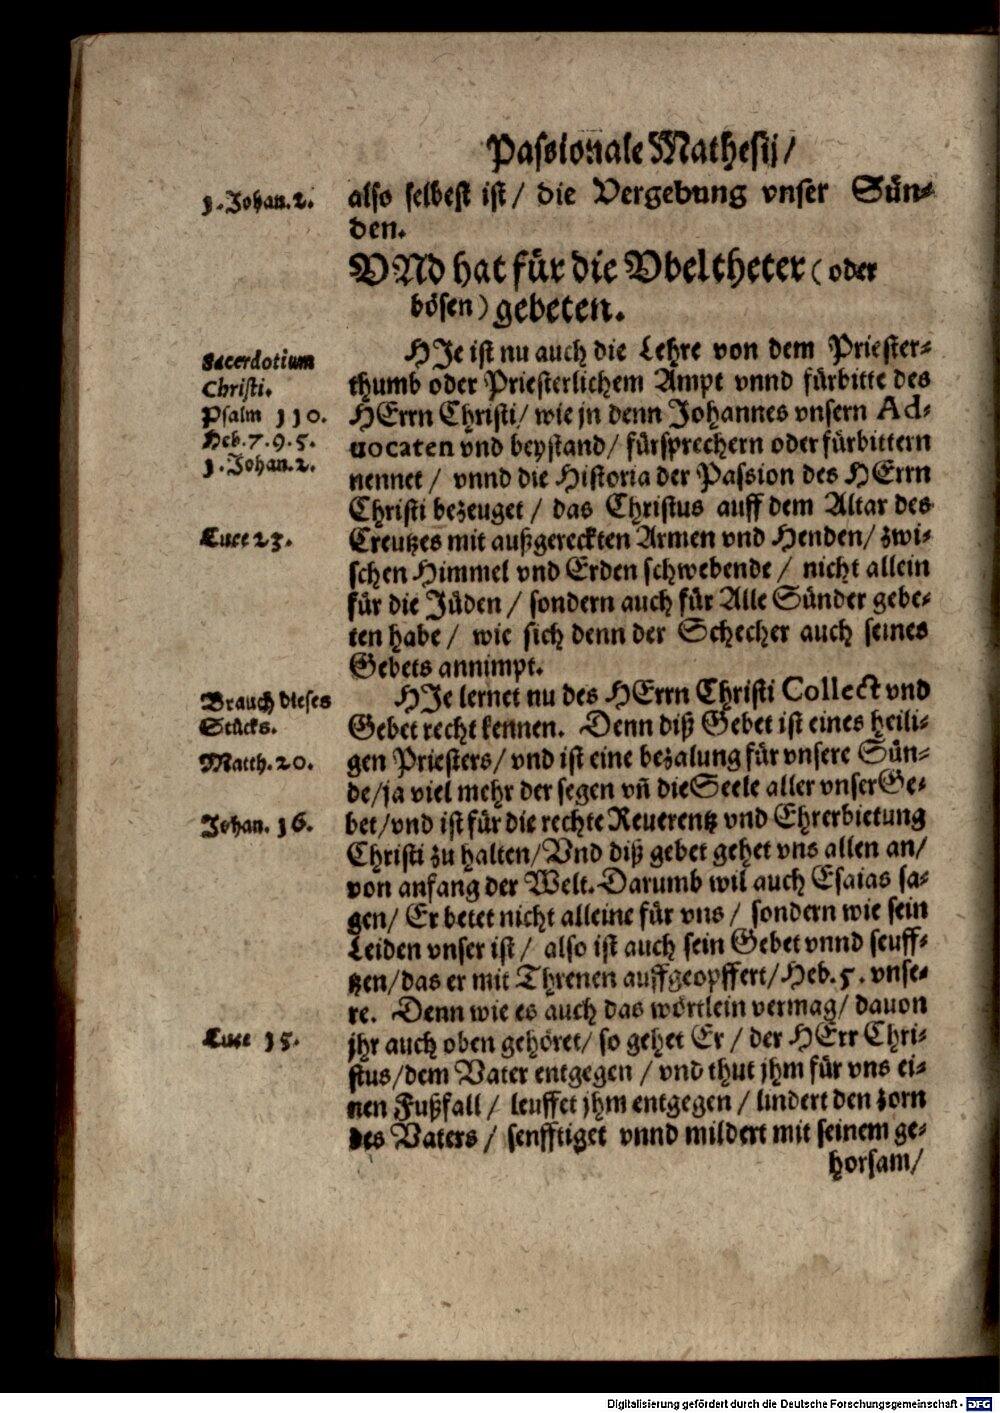 Passionale Mathesij/
1. Johan. 2.
also selbest ist/ die Vergebung vnser Sün-
den.
VNd hat für die Vbeltheter (oder
bösen) gebeten.
Sacerdotium
Christi.
Psalm 110.
Heb. 7. 9. 5.
1. Johan. 2.
HJe ist nu auch die Lehre von dem Priester-
thumb oder Priesterlichem Ampt vnnd fürbitte des
HErrn Christi/ wie jn denn Johannes vnsern Ad-
uocaten vnd beystand/ fürsprechern oder fürbittern
nennet/ vnnd die Historia der Passion des HErrn
Christi bezeuget/ das Christus auff dem Altar des
Luce 23.
Creutzes mit außgereckten Armen vnd Henden/ zwi-
schen Himmel vnd Erden schwebende/ nicht allein
für die Jüden/ sondern auch für Alle Sünder gebe-
ten habe/ wie sich denn der Schecher auch seines
Gebets annimpt.
Brauch dieses
Stücks.
HJe lernet nu des HErrn Christi Collect vnd
Gebet recht kennen. Denn diß Gebet ist eines heili-
Matth. 20.
gen Priesters/ vnd ist eine bezalung für vnsere Sün-
de/ ja viel mehr der segen vñ die Seele aller vnser Ge-
Johan. 16.
bet/ vnd ist für die rechte Reuerentz vnd Ehrerbietung
Christi zu halten/ Vnd diß gebet gehet vns allen an/
von anfang der Welt. Darumb wil auch Esaias sa-
gen/ Er betet nicht alleine für vns/ sondern wie sein
Leiden vnser ist/ also ist auch sein Gebet vnnd seuff-
tzen/ das er mit Threnen auffgeopffert/ Heb. 5. vnse-
re. Denn wie es auch das wörtlein vermag/ dauon
Luce 15.
jhr auch oben gehöret/ so gehet Er/ der HErr Chri-
stus/ dem Vater entgegen/ vnd thut jhm für vns ei-
nen Fußfall/ leuffet jhm entgegen/ lindert den zorn
des Vaters/ senfftiget vnnd mildert mit seinem ge-
horsam/
Digitalisierung gefördert durch die Deutsche Forschungsgemeinschaft - DFG